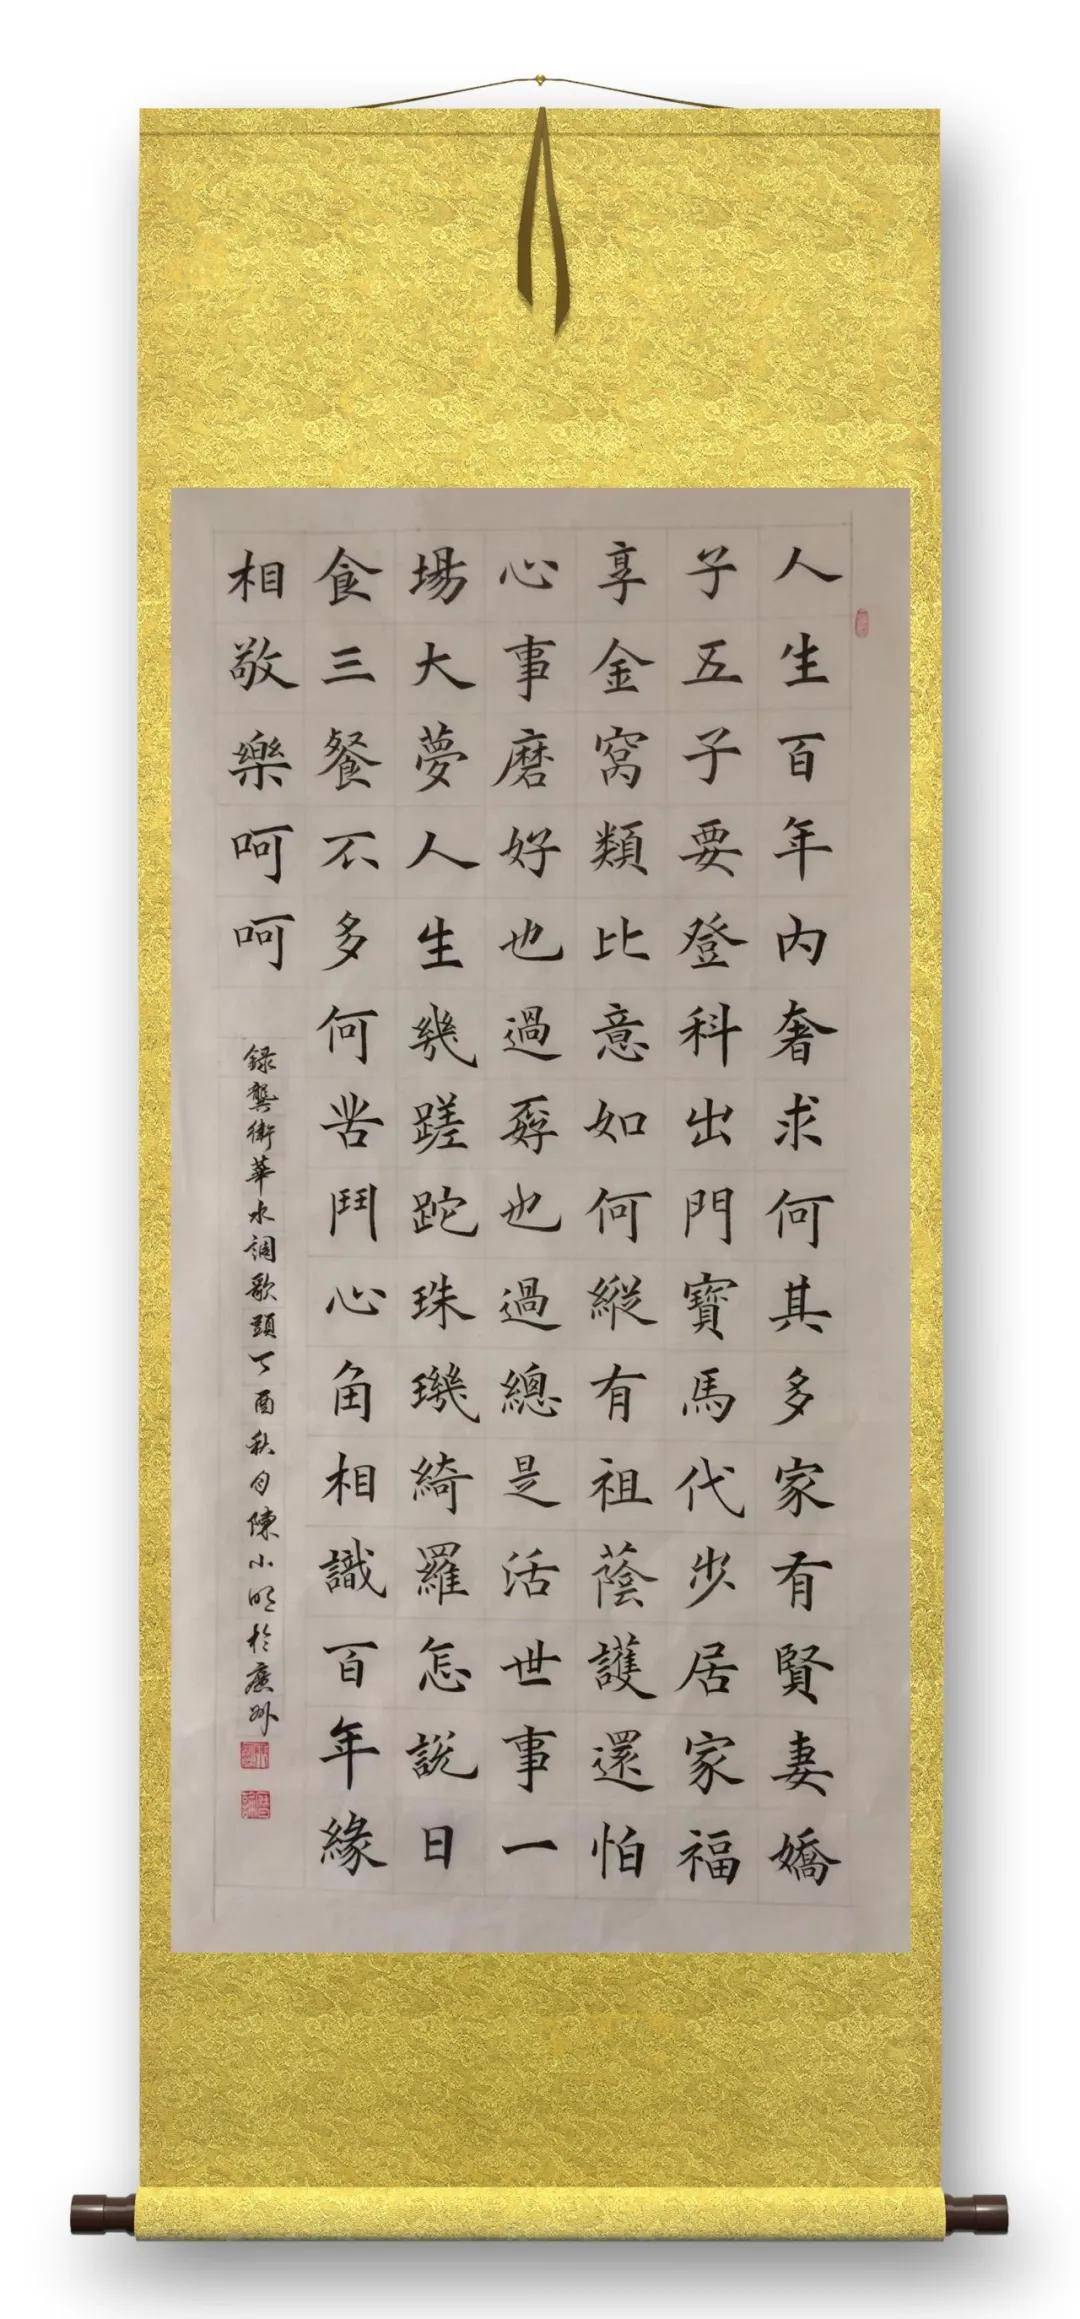 人生百年内奢求何其多家有賢妻嬌
子五子要登科出門寶馬代步居家福
享金窩類比意如何縱有祖蔭護還怕
心事磨好也過孬也過總是活世事一
場大夢人生幾蹉跎珠璣綺羅怎説日
食三餐不多何苦鬥心角相識百年緣
相敬樂呵呵
録龔衛華水調歌頭丁酉秋月陳小明於廣州